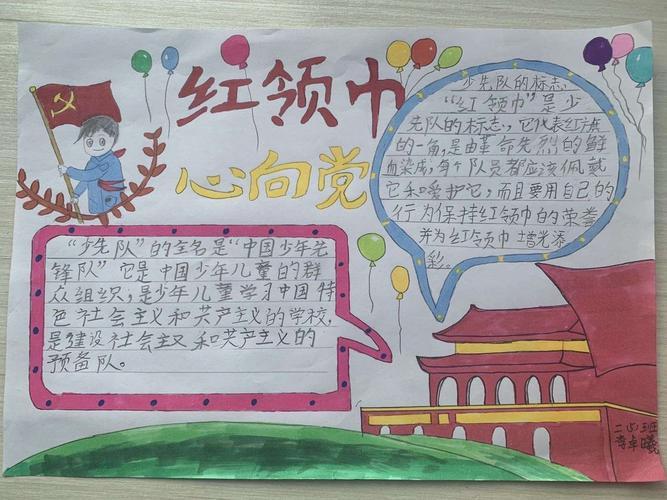 红领巾
心向党
少先队的标志
“红领巾”是少
先队的标志，它代表红旗
的一角，是由革命先烈的鲜
血染成，每个队员都应该佩戴
它和爱护它，而且要用自己的
行为保持红领巾的荣誉
并为红领巾增光添
彩。
“少先队”的全名是“中国少年先
锋队”它是中国少年儿童的群
众组织，是少年儿童学习中国特
色社会主义和共产主义的学校，
是建设社会主义和共产主义的
预备队。
二(5)班
李卓曦